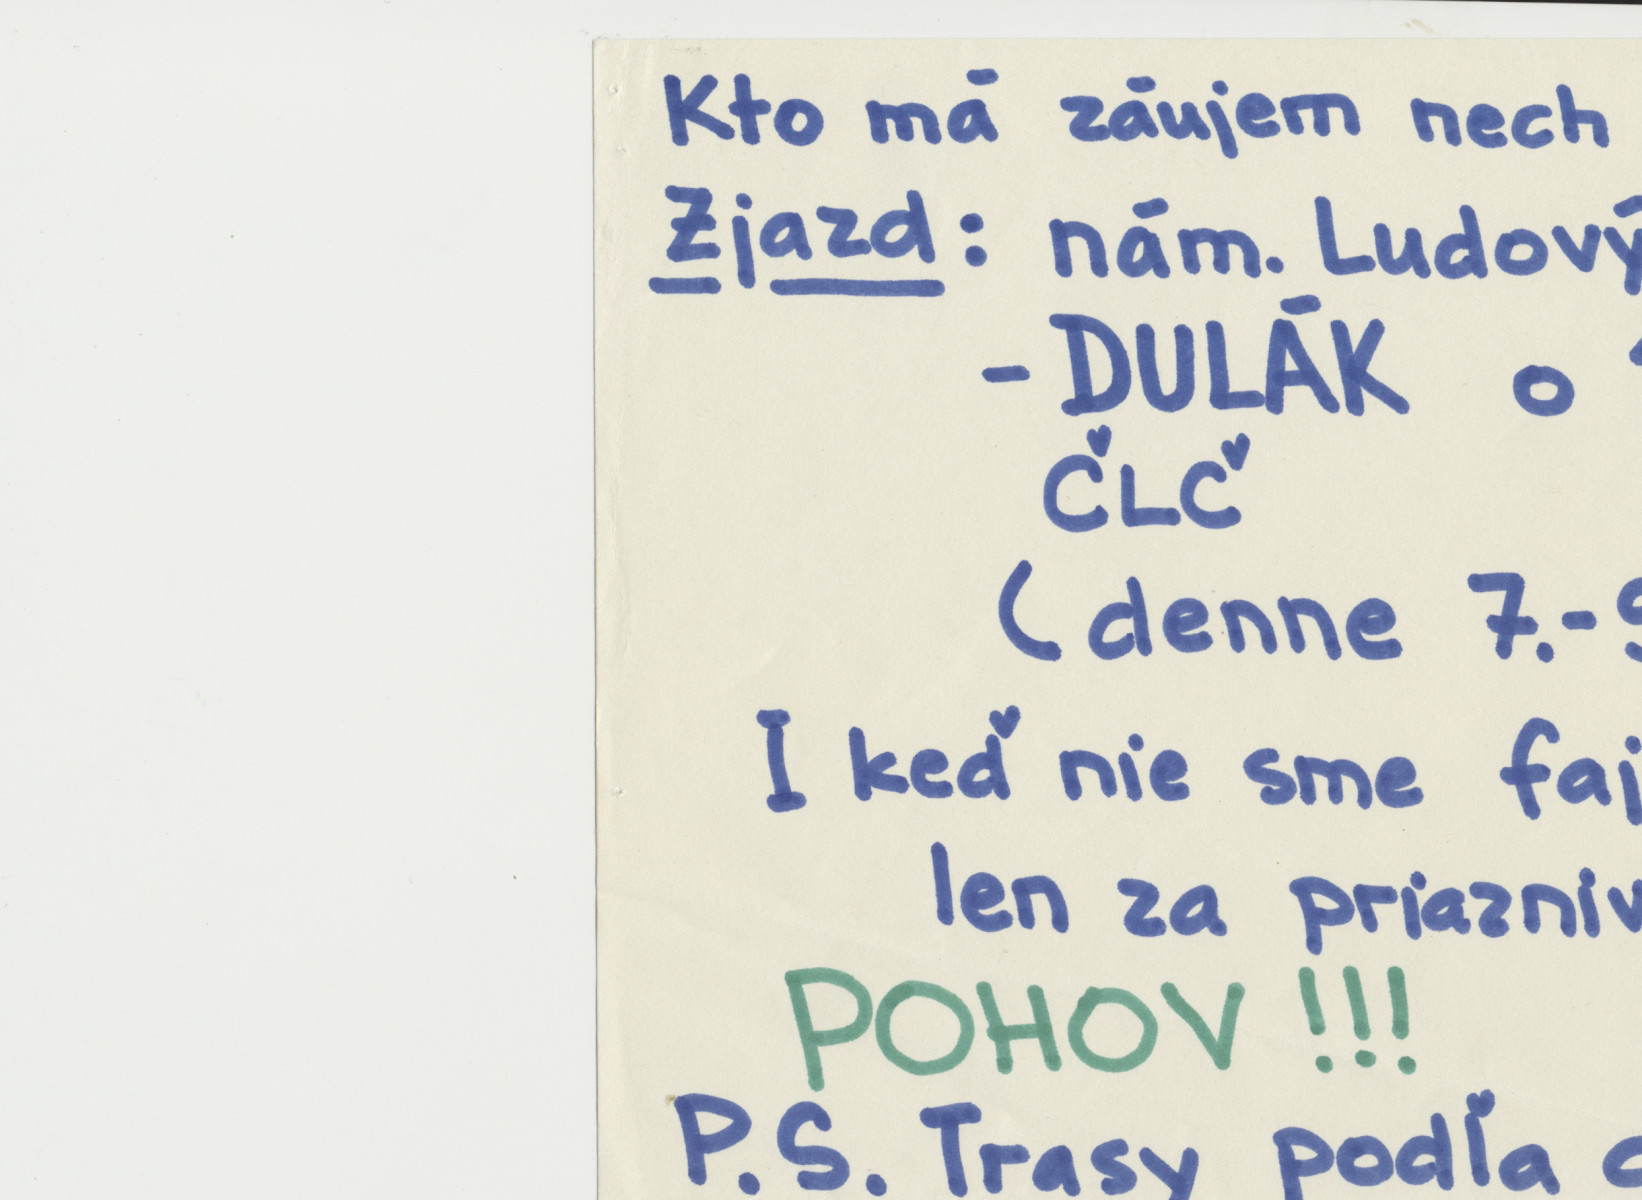 Kto má záujem nech
Zjazd: nám. Ludový
- DULÁK o
ČLČ
(denne 7.-9
I keď nie sme faj
len za priazniv
POHOV !!!
P.S. Trasy podľa